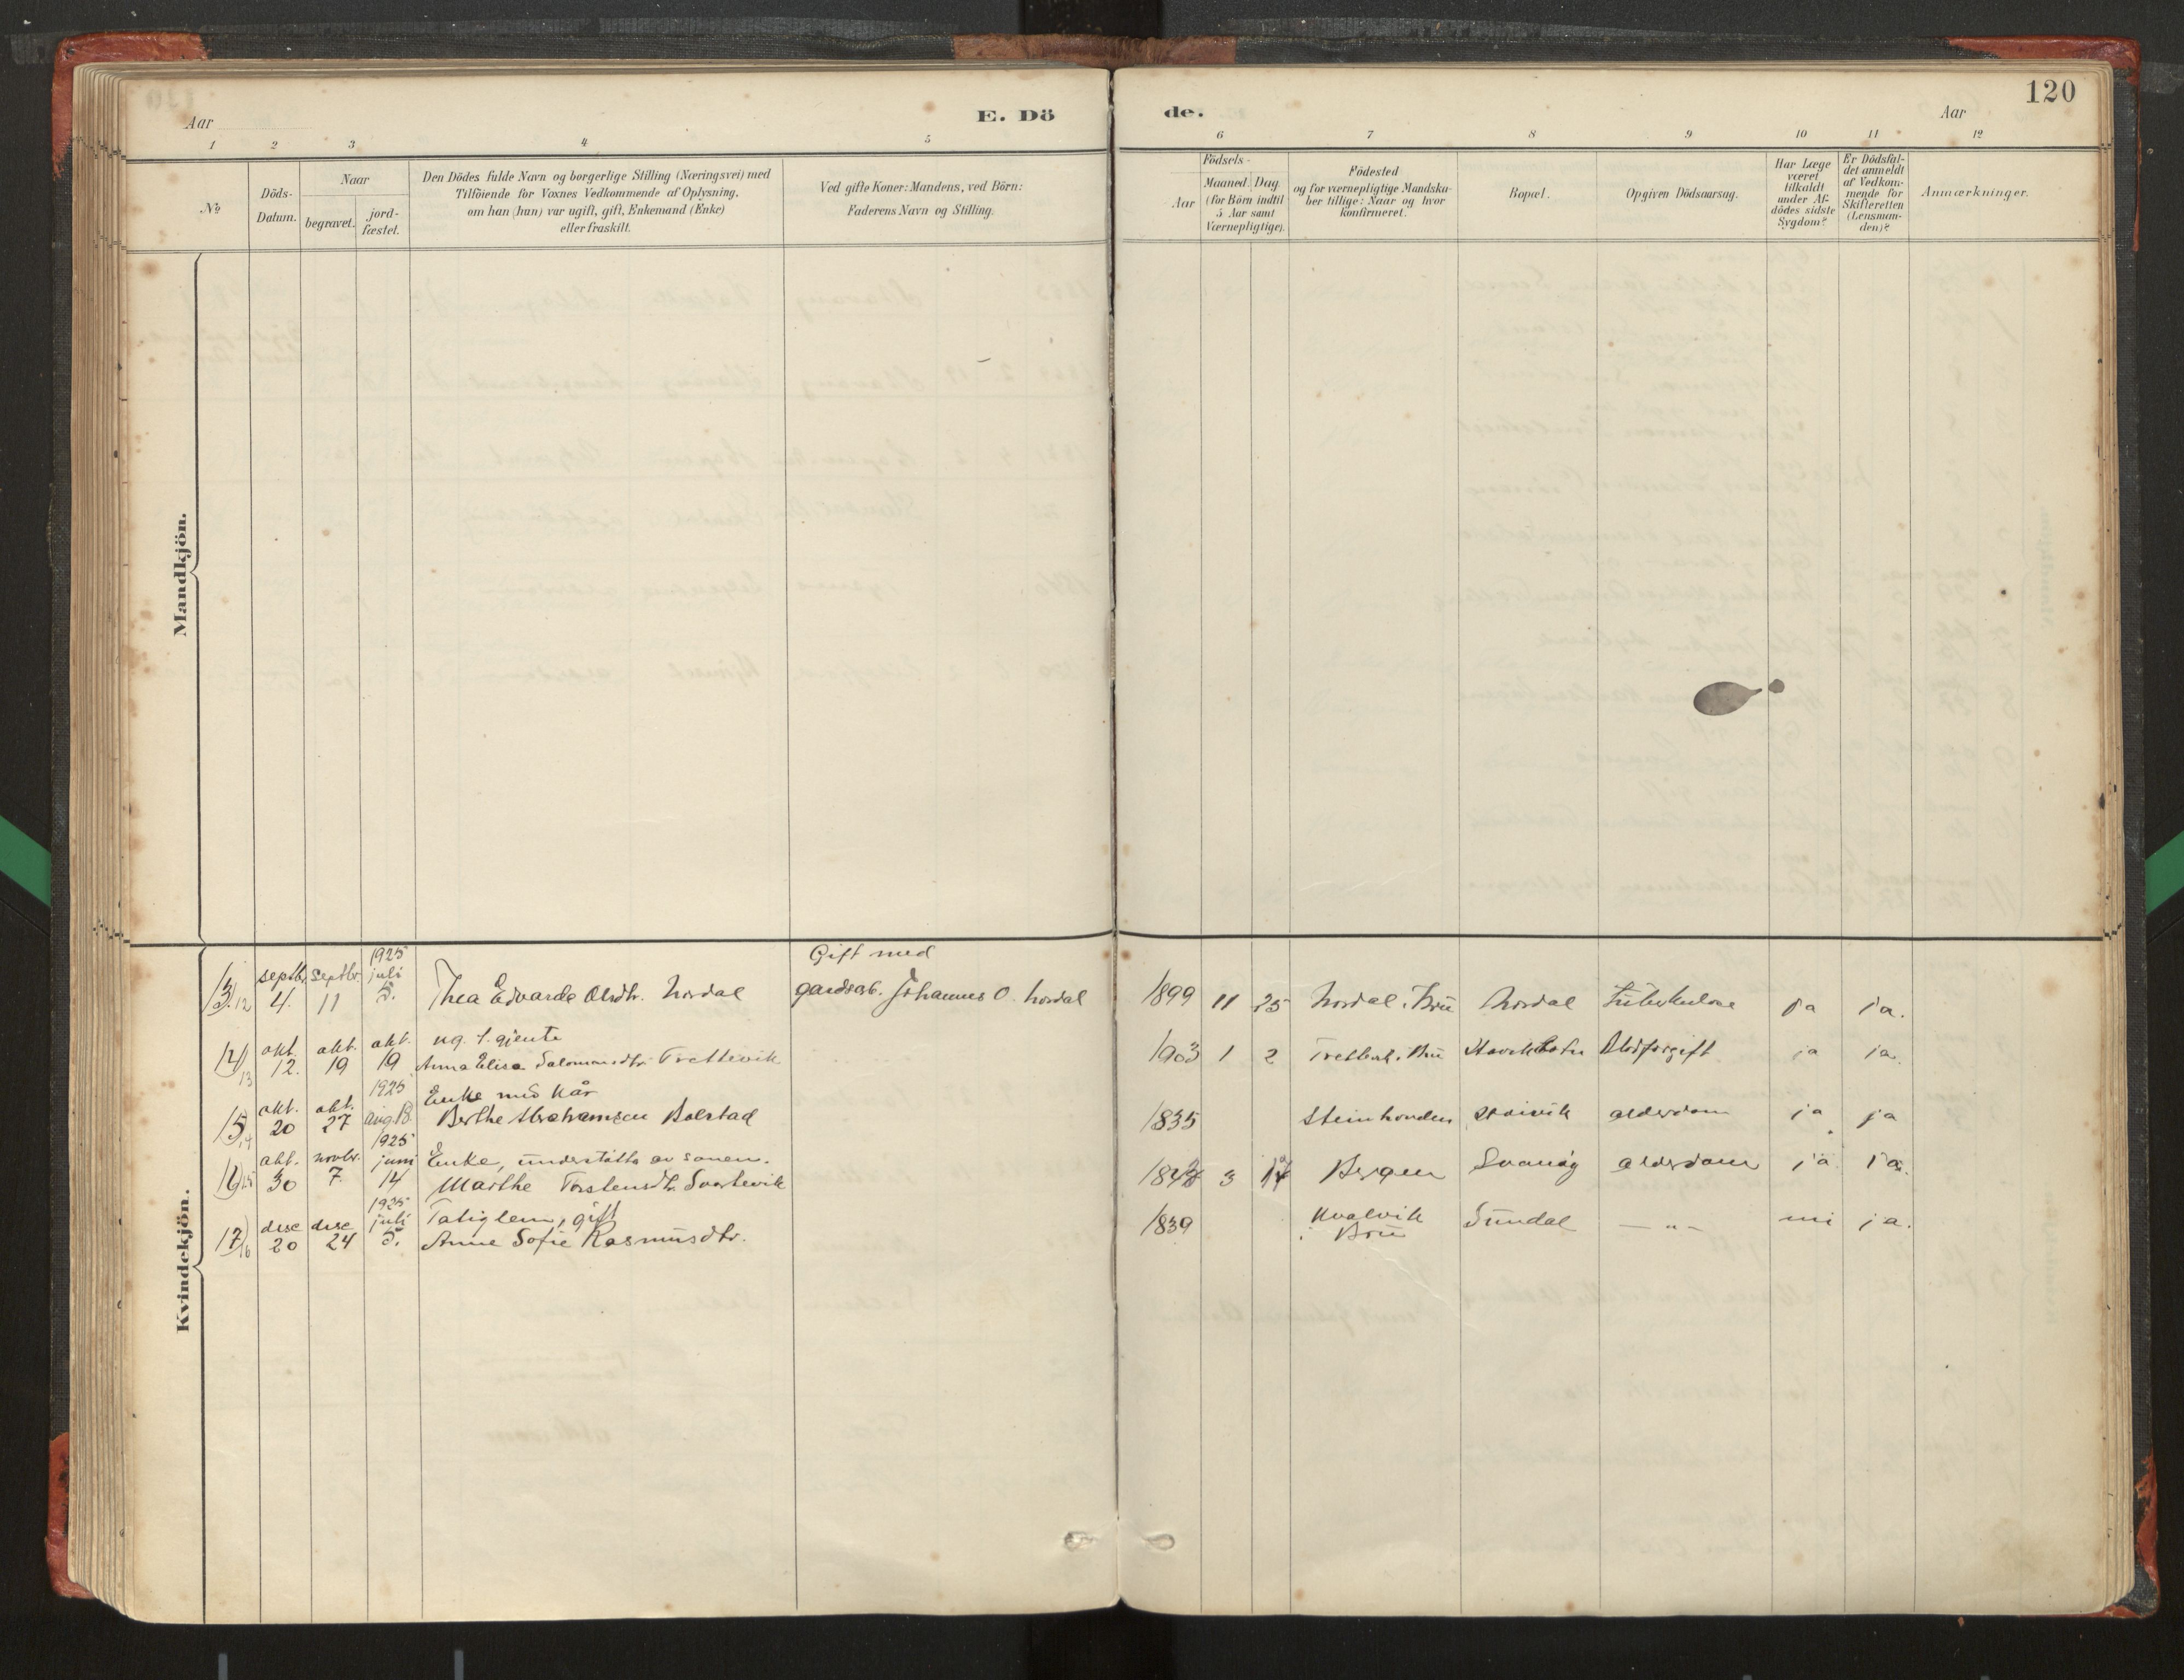 120
Aar
E. Dö
de.
Aar
1 2 3 4 5 6 7 8 9 10 11 12
No
Döds-
Datum.
Naar
begravet.
jord-
fæstet.
Den Dödes fulde Navn og borgerlige Stilling (Næringsvei) med
Tilföiende for Voxnes Vedkommende af Oplysning,
om han (hun) var ugift, gift, Enkemand (Enke)
eller fraskilt.
Ved gifte Koner: Mandens, ved Börn:
Faderens Navn og Stilling.
Födsels-
Aar
Maaned. Dag
(for Börn indtil
5 Aar samt
Værnepligtige).
Födested
og for værnepligtige Mandska-
ber tillige: Naar og hvor
konfirmeret.
Bopæl.
Opgiven Dödsaarsag.
Har Læge
været
tilkaldt
under Af-
dödes sidste
Sygdom?
Er Dödsfal-
det anmeldt
af Vedkom-
mende for
Skifteretten
(Lensman-
den)?
Anmærkninger.
Mandkjön.
Kvindekjön.
1925 Gift med
septbr. septbr. juli
13) 12 4. 11 5. Thea Edvarda Olsdtr. Nordal gardsarb. Johannes O. Nordal 1899 11 25 Nordal, Bru Nordal Tuberkulose ja ja.
okt. okt. okt. ug. f. gjente
14) 13 12. 19 19 Anna Elisa Salomonsdtr. Trettevik 1903 1 2 Blodforgift ja ja.
1925 Enke med kår
okt. okt. aug.
15) 14 20 27 Berthe Abrahamsen Bolstad 1835 alderdom ja ja
1925
okt. novbr. juni Enke, understötta av sonen.
16) 15 30 7. 14 Marthe Torstensdtr. Svartevik 3 Bergen Svanöy alderdom ja ja.
1925
dese dese juli gift
17) 16 20 24 5. Anne Sofie Rasmusdtr. 1839 Kvalvik i Bru Sündal — " — nei ja.